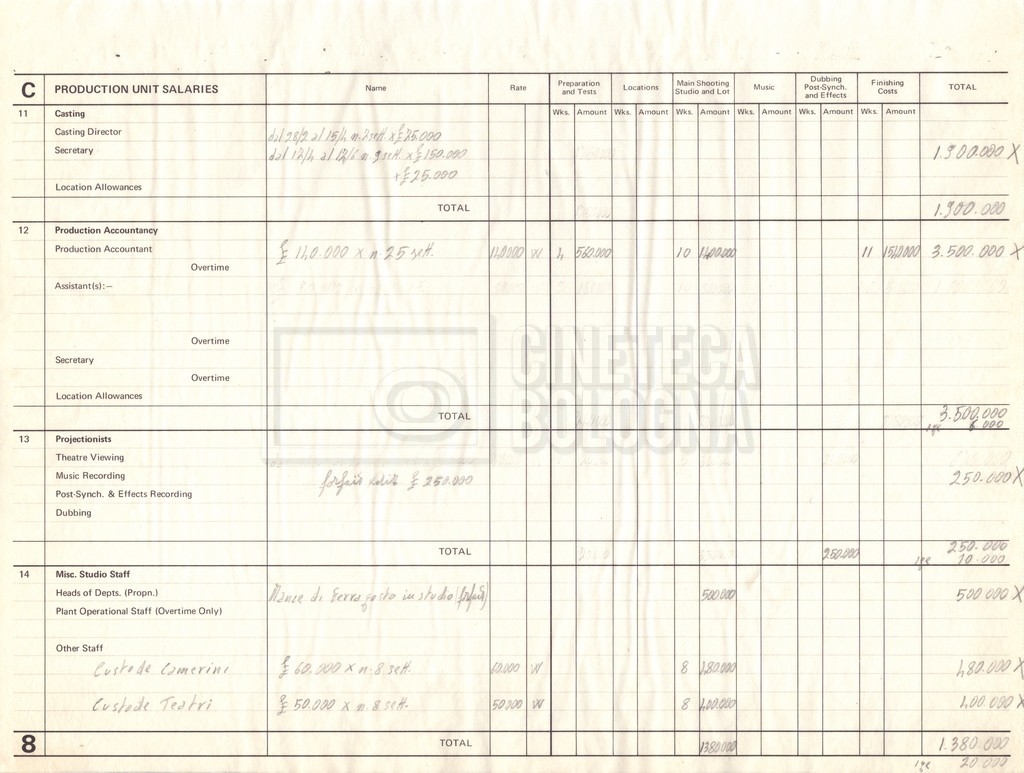 C PRODUCTION UNIT SALARIES Name Rate Preparation and Tests Locations Main Shooting Studio and Lot Music Dubbing Post-Synch. and Effects Finishing Costs TOTAL
11 Casting Wks. Amount Wks. Amount Wks. Amount Wks. Amount Wks. Amount Wks. Amount
Casting Director dal 28/2 al 15/4 n. 7 sett x £ 25.000
Secretary dal 12/4 al 12/6 n 9 sett. x £ 150.000 1.900.000 X
+ £ 25.000
Location Allowances
TOTAL 1.900.000
12 Production Accountancy
Production Accountant £ 140.000 x n. 25 sett. 140000 W 4 560.000 10 1400.000 11 1540.000 3.500.000 X
Overtime
Assistant(s):—
Overtime
Secretary
Overtime
Location Allowances
CINETECA
BOLOGNA
TOTAL 3.500.000
ige 6.000
13 Projectionists
Theatre Viewing
Music Recording forfait £ 250.000 250.000 X
Post-Synch. & Effects Recording
Dubbing
TOTAL 250.000 250.000
ige 10.000
14 Misc. Studio Staff
Heads of Depts. (Propn.) Mance di Ferragosto in studio (forfait) 500.000 500.000 X
Plant Operational Staff (Overtime Only)
Other Staff
Custode Camerini £ 60.000 x n. 8 sett. 60.000 W 8 480.000 480.000 X
Custode Teatri £ 50.000 x n. 8 sett. 50.000 W 8 400.000 400.000 X
8 TOTAL 1380.000 1.380.000
ige 20.000